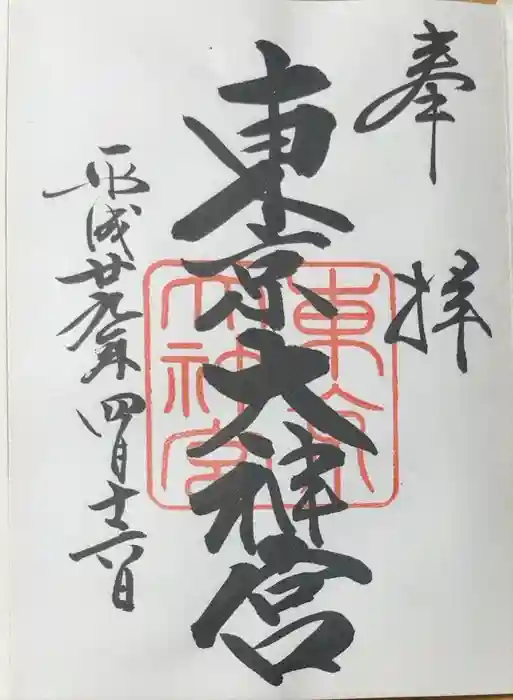 奉拝
東京大神宮
平成廿九年四月十六日
東京大神宮